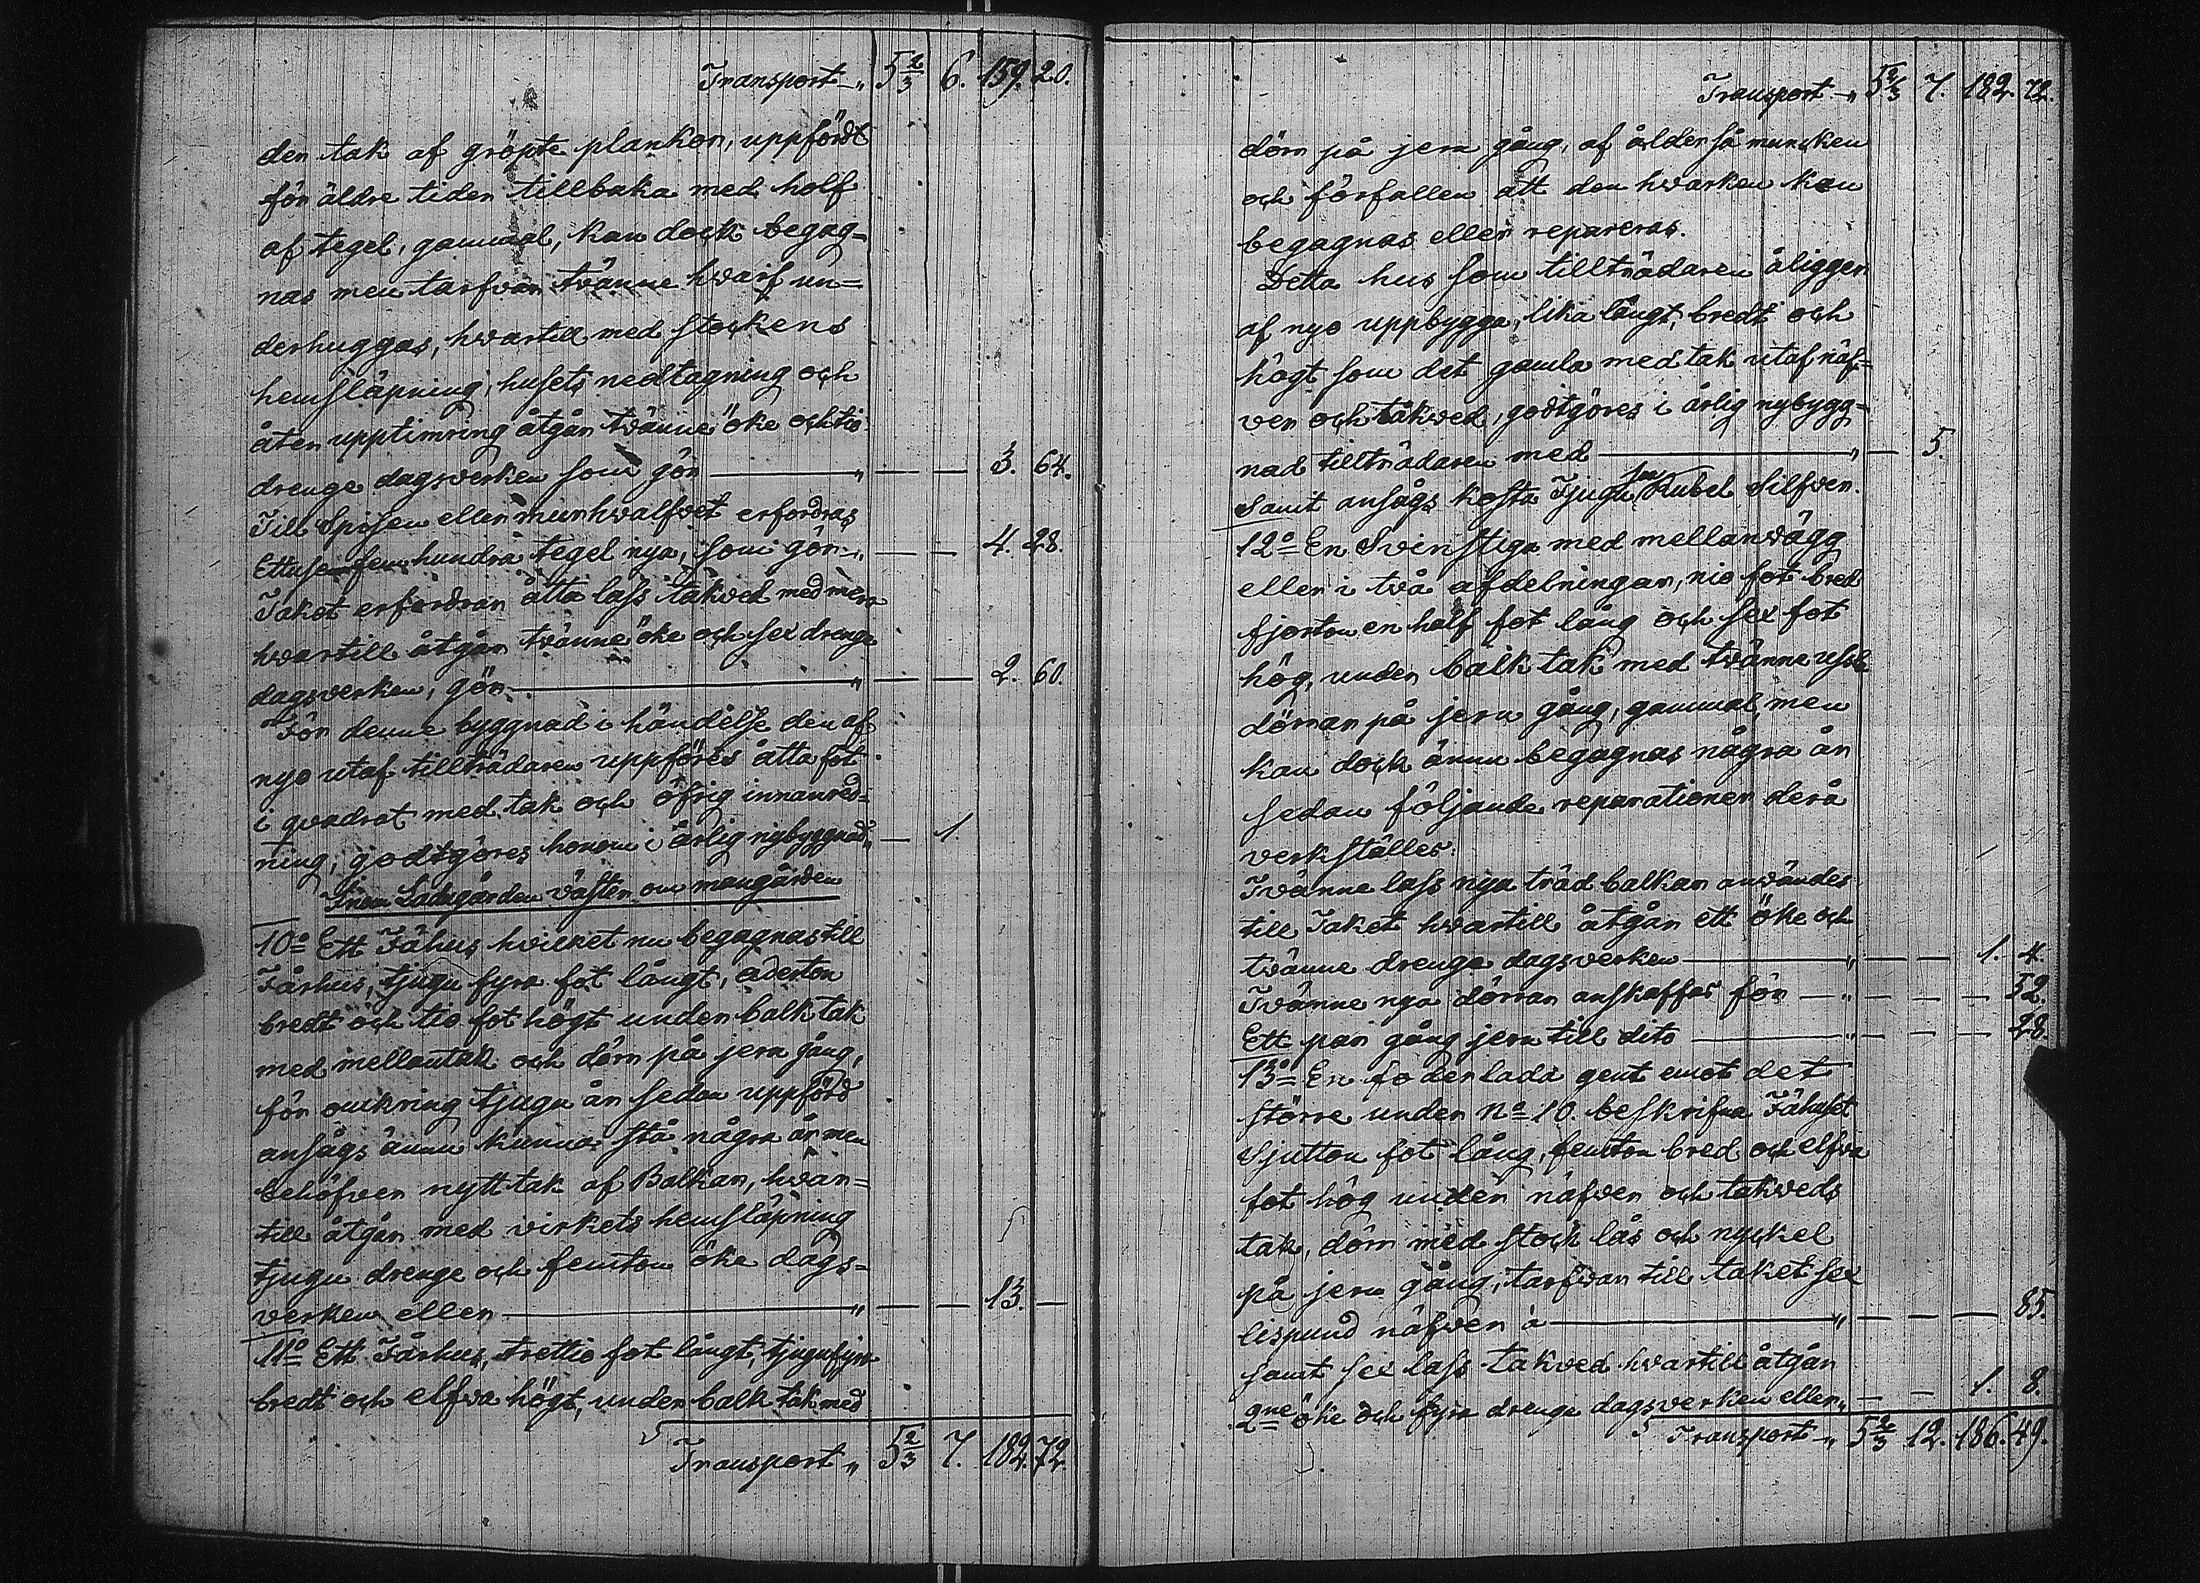 Transport „ 5 2/3 6. 159. 20.
den tak af gröpte plankor, uppfördt
för äldre tider tillbaka med holf
af tegel, gammal, kan dock begag=
nas men tarfvar tvänne hvarf un=
derhuggas, hvartill med stockens
hemsläpning, husets nedtagning och
åter upptimring åtgår tvänne öke och tio
drenge dagsverken som gör — „ — — 3. 64.
Till Spisen eller murhvalfvet erfordras
Ettusen fem hundra tegel nya, som gör „ — — 4. 28.
Taket erfordrar åtta lass takved med mera
hvartill åtgår tvänne öke och sex drenge
dagsverken, gör — „ — — 2. 60.
För denne byggnad i händelse den af
nyo utaf tillträdaren uppföres åtta fot
i qvadrat med tak och öfrig innanred=
ning, godtgöres honom i årlig nybyggnad „ — 1.
Inom Ladugården väster om mangården
10o Ett Fähus hvilket nu begagnas till
Fårhus, tjugu fyra fot långt, aderton
bredt och tio fot högt under balk tak
med mellantak och dörr på jern gång,
för omkring tjugu år sedan uppförd
ansågs ännu kunna stå några år men
behöfver nytt tak af Balkar, hvar=
till åtgår med virkets hemsläpning
tjugu drenge och femton öke dags=
verken eller — „ — — 13. —
11o Ett Fårhus, trettio fot långt, tjugufyra
bredt och elfva högt, under balk tak med
Transport „ 5 2/3 7. 182. 72.
Transport „ 5 2/3 7. 182. 72.
dörr på jern gång, af ålder så murcken
och förfallen att den hvarken kan
begagnas eller repareras.
Detta hus som tillträdaren åligger
af nyo uppbygga, lika långt, bredt och
högt som det gamla med tak utaf näf=
ver och takved, godtgöres i årlig nybygg=
nad tillträdaren med — „ — 5.
Samt ansågs kosta Tjugu sex Rubel Silfver.
12o En Svinstiga med mellanvägg
eller i två afdelningar, nio fot bred
fjorton en half fot lång och sex fot
hög, under balk tak med tvänne ussla
dörrar på jern gång, gammal, men
kan dock ännu begagnas några år
sedan följande reparationer derå
verkställes.
Tvänne lass nya träd balkar användes
till Taket hvartill åtgår ett öke och
tvänne drenge dagsverken — „ — — 1. 4.
Tvänne nya dörrar anskaffas för — „ — — — 52.
Ett par gång jern till dito — „ — — — 28.
13o En foderlada gent emot det
större under No 10 beskrifna Fähuset
Sjutton fot lång, femton bred och elfva
fot hög under näfver och takveds
tak, dörr med stock lås och nyckel
på jern gång, tarfvar till taket sex
lispund näfver à — „ — — — 85.
samt sex lass takved hvartill åtgår
2ne öke och fyra drenge dagsverken eller „ — — 1. 8.
Transport „ 5 2/3 12. 186. 49.